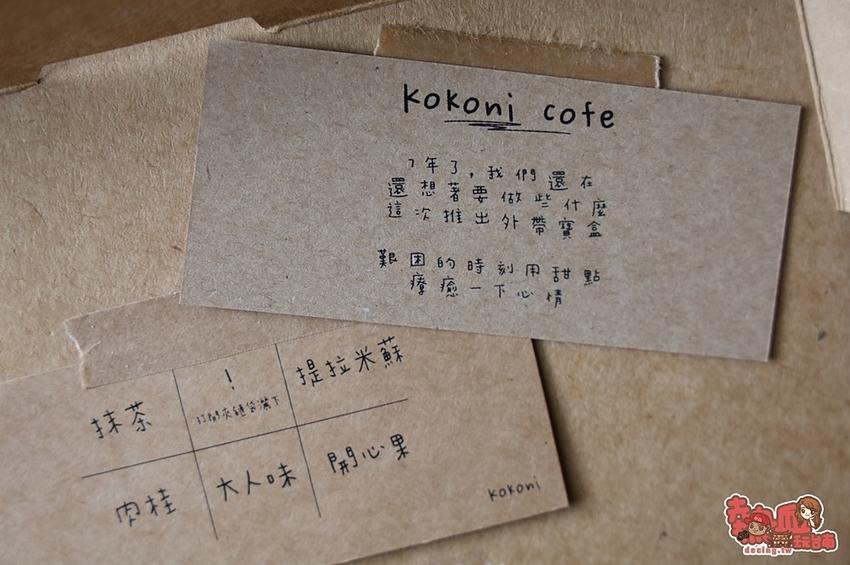 kokoni cofe
7年了，我們還在
還想著要做些什麼
這次推出外帶寶盒
艱困的時刻用甜點
療癒一下心情
抹茶
!
打開夾鏈袋灑下
提拉米蘇
肉桂
大人味
開心果
kokoni
熱血玩台南
decing.tw